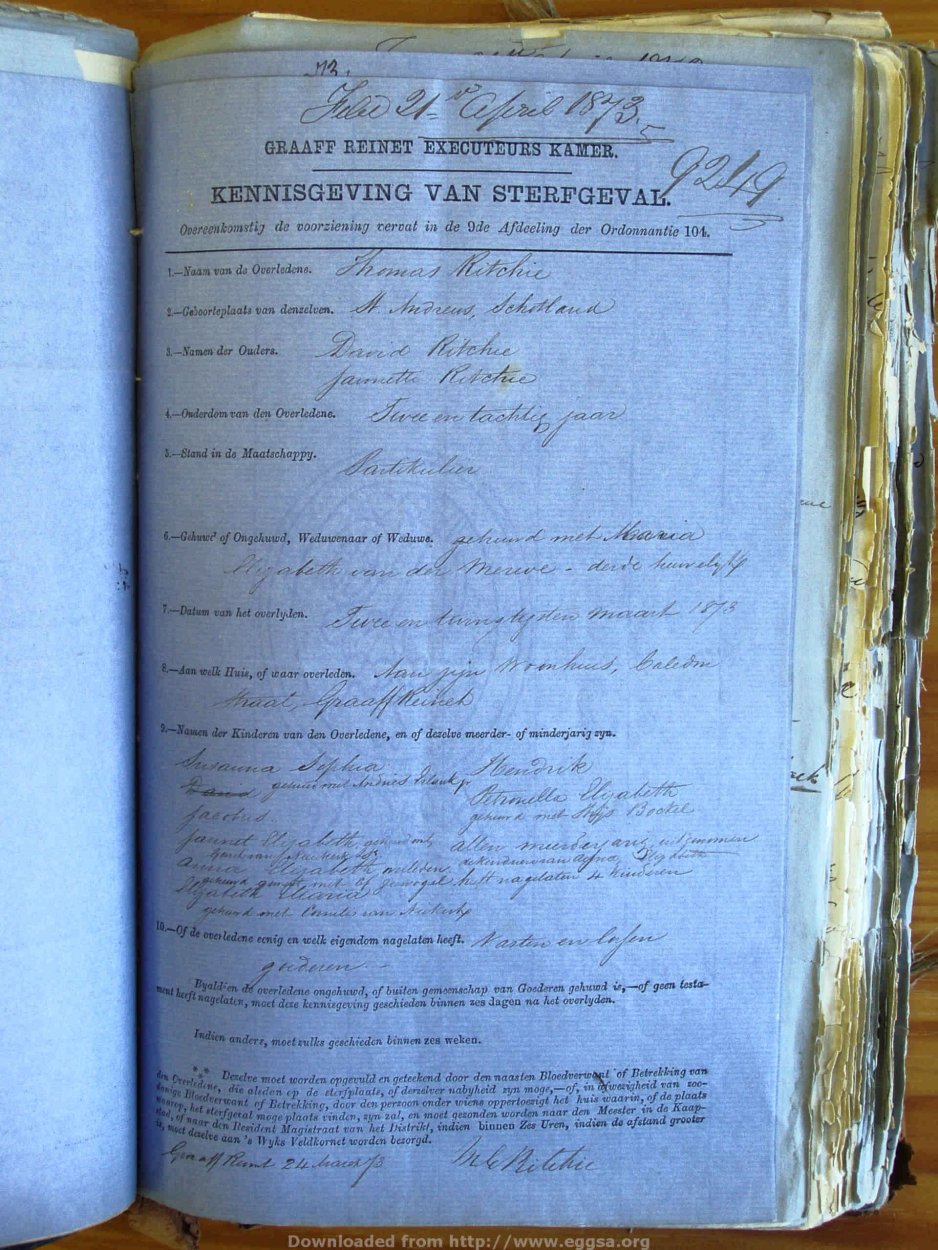 Filed 21st April 1873.
GRAAFF REINET EXECUTEURS KAMER.
9249
KENNISGEVING VAN STERFGEVAL.
Overeenkomstig de voorziening vervat in de 9de Afdeeling der Ordonnantie 104.
1.—Naam van de Overledene. Thomas Ritchie
2.—Geboorteplaats van denzelven. St. Andrews, Schotland
3.—Namen der Ouders. David Ritchie
Jannette Ritchie
4.—Ouderdom van den Overledene. Twee en tachtig jaar
5.—Stand in de Maatschappy.
Partikulier
6.—Gehuwd of Ongehuwd, Weduwenaar of Weduwe. gehuwd met Maria
Elizabeth van der Merwe - derde huwelyk
7.—Datum van het overlyden. Twee en twintigsten Maart 1873
8.—Aan welk Huis, of waar overleden. Aan zijn Woonhuis, Caledon
Straat, Graaff Reinet
9.—Namen der Kinderen van den Overledene, en of dezelve meerder- of minderjarig zyn.
Susanna Sophia Hendrik
gehuwd met Andries
Petronella Elizabeth
Jacobus gehuwd met StoffsBöckel
Jannet Elizabeth gehuwd met allen meerderjarig uitgenomen
Anna Elizabeth overleden
heeft nagelaten 4 kinderen
Elizabeth Maria
gehuwd met Cornelis van Niekerk
10.—Of de overledene eenig en welk eigendom nagelaten heeft. Vasten en losen
goederen -
Byaldien de overledene ongehuwd, of buiten gemeenschap van Goederen gehuwd is,—of geen testa-
ment heeft nagelaten, moet deze kennisgeving geschieden binnen zes dagen na het overlyden.
Indien anders, moet zulks geschieden binnen zes weken.
*** Dezelve moet worden opgevuld en geteekend door den naasten Bloedverwant of Betrekking van
den Overledene, die alsdan op de sterfplaats, of derzelver nabyheid zyn moge,—of, in afwezigheid van zoo-
danige Bloedverwant of Betrekking, door den persoon onder wiens oppertoezigt het huis waarin, of de plaats
waarop, het sterfgeval moge plaats vinden, zyn zal, en moet gezonden worden naar den Meester in de Kaap-
stad, of naar den Resident Magistraat van het Distrikt, indien binnen Zes Uren, indien de afstand grooter
is, moet dezelve aan 's Wyks Veldkornet worden bezorgd.
Graaff Reinet 24 March/73 Ritchie
Downloaded from http://www.eggsa.org